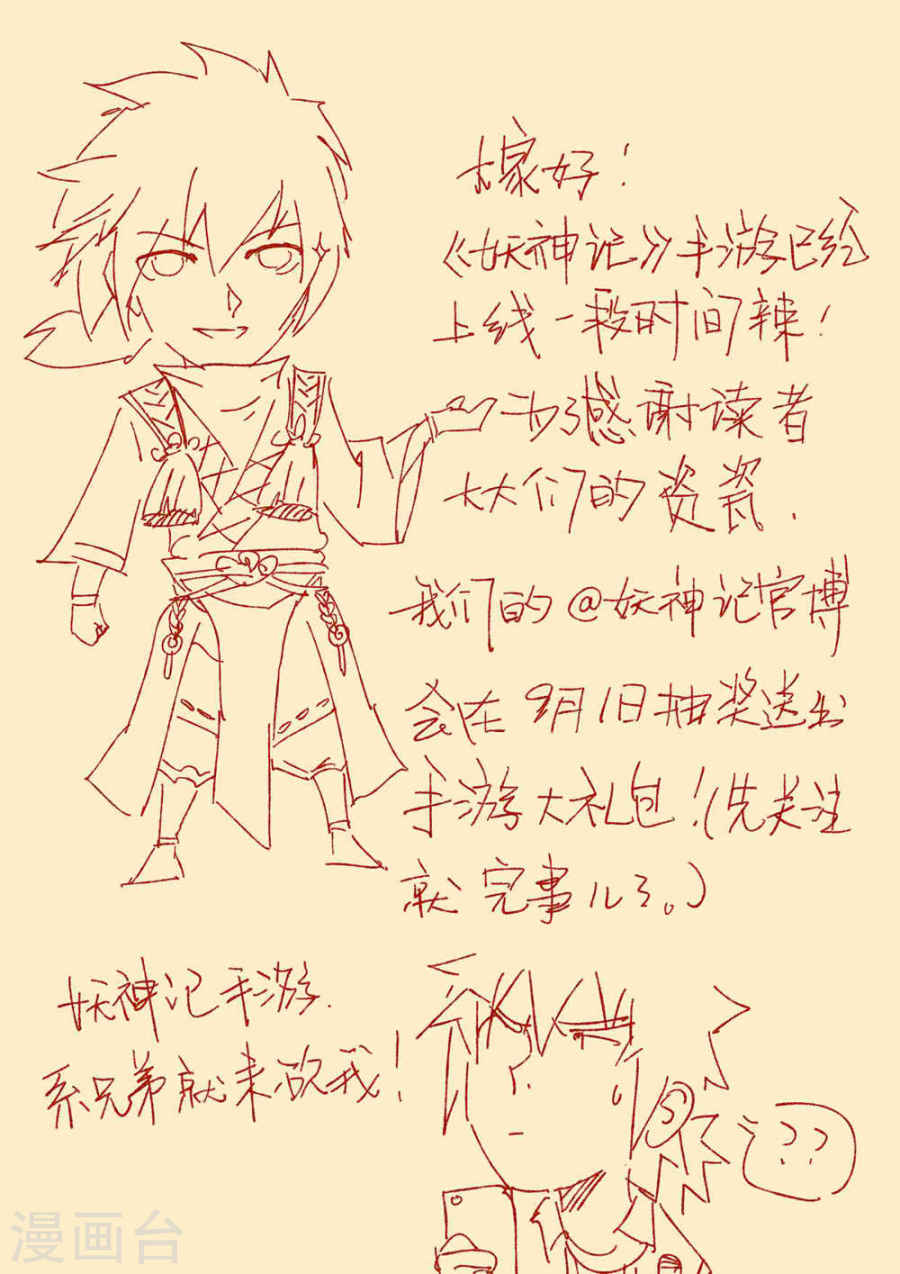 大家好！
《妖神记》手游已经
上线一段时间辣！
为了感谢读者
大大们的资瓷.
我们的@妖神记官博
会在9月1日抽奖送出
手游大礼包！(先关注
就完事儿了。)
妖神记手游.
系兄弟就来砍我！
??
漫画台